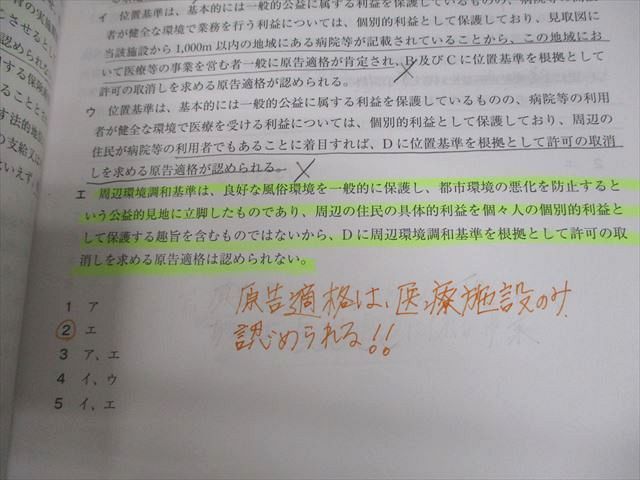 イ 位置基準は、基本的には一般的公益に属する利益を保護しているものの、病院等の
者が健全な環境で業務を行う利益については、個別的利益として保護しており、見取図に
当該施設から1,000m以内の地域にある病院等が記載されていることから、この地域にお
いて医療等の事業を営む者一般に原告適格が肯定され、B及びCに位置基準を根拠として
許可の取消しを求める原告適格が認められる。
ウ 位置基準は、基本的には一般的公益に属する利益を保護しているものの、病院等の利用
者が健全な環境で医療を受ける利益については、個別的利益として保護しており、周辺の
住民が病院等の利用者でもあることに着目すれば、Dに位置基準を根拠として許可の取消
しを求める原告適格が認められる。
エ 周辺環境調和基準は、良好な風俗環境を一般的に保護し、都市環境の悪化を防止すると
いう公益的見地に立脚したものであり、周辺の住民の具体的利益を個々人の個別的利益と
して保護する趣旨を含むものではないから、Dに周辺環境調和基準を根拠として許可の取
消しを求める原告適格は認められない。
1 ア
2 エ
3 ア、エ
4 イ、ウ
5 イ、エ
原告適格は、医療施設のみ
認められる!!